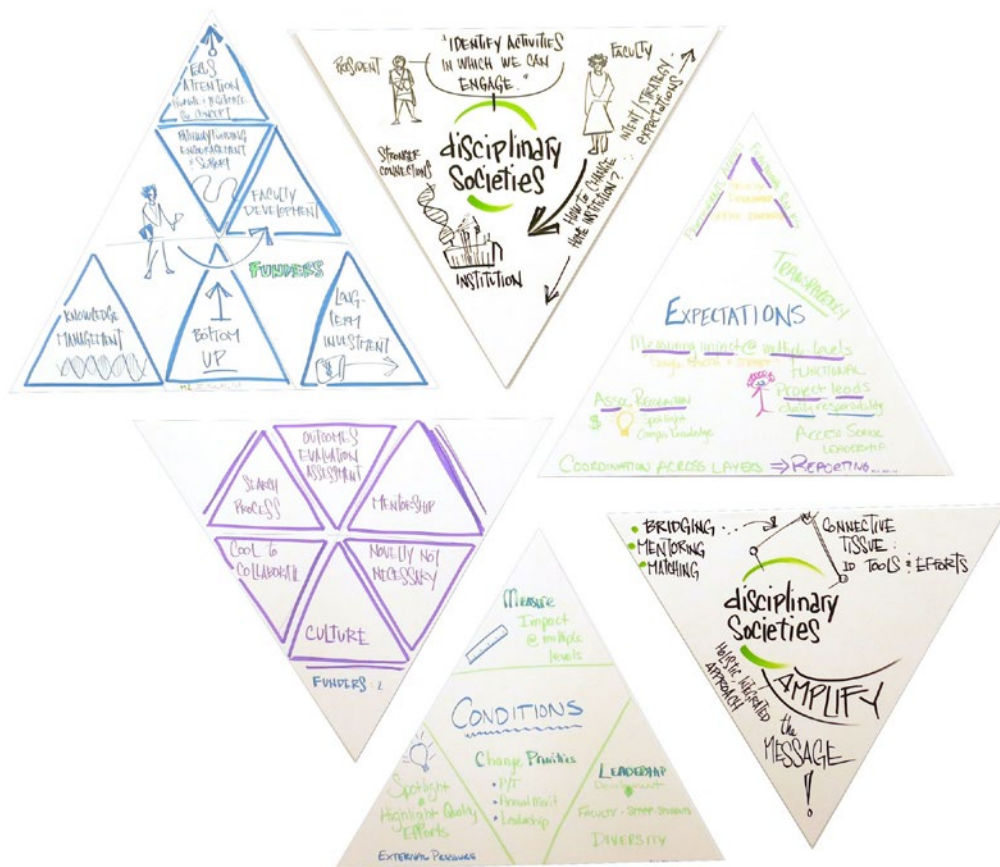 FOCUS
ATTENTION
CONCEPT
ENCOURAGEMENT
SUPPORT
FACULTY
DEVELOPMENT
FUNDERS
KNOWLEDGE
MANAGEMENT
BOTTOM
UP
LONG-
TERM
INVESTMENT
$
PRESIDENT
"IDENTIFY ACTIVITIES
IN WHICH WE CAN
ENGAGE."
FACULTY
INTENT/STRATEGY
EXPECTATIONS
STRONGER
CONNECTIONS
disciplinary
Societies
HOW TO CHANGE
HOME INSTITUTION?
INSTITUTION
TRANSPARENCY
EXPECTATIONS
Measuring @ multiple levels
FUNCTIONAL
Project leads
ASSOC RECOGNITION
$
Spotlight
Campus Knowledge
ACCESS SENIOR
LEADERSHIP
COORDINATION ACROSS LAYERS ⇒ REPORTING
OUTCOMES
EVALUATION
ASSESSMENT
SEARCH
PROCESS
MENTORSHIP
COOL TO
COLLABORATE
NOVELTY NOT
NECESSARY
CULTURE
FUNDERS: 2
MEASURE
Impact
@ multiple
levels
CONDITIONS
Change Priorities
• P/T
• Annual Merit
• Leadership
Spotlight
Highlight Quality
Efforts
EXTERNAL PRESSURE
LEADERSHIP
Development
FACULTY - STAFF - STUDENTS
DIVERSITY
• BRIDGING...
• MENTORING
• MATCHING
CONNECTIVE
TISSUE:
ID TOOLS & EFFORTS
disciplinary
Societies
HOLISTIC, INTEGRATED
APPROACH
AMPLIFY
the
MESSAGE
!